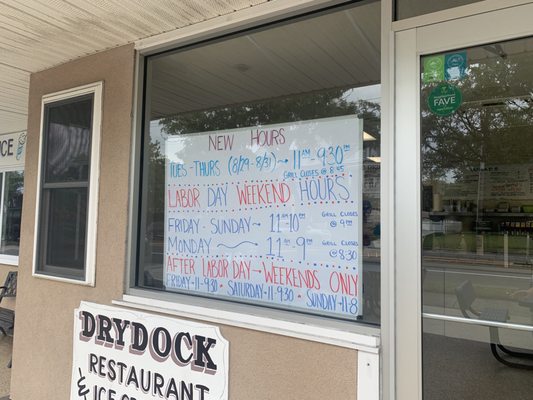 NEW HOURS
TUES - THURS (8/29 - 8/31) → 11AM - 9:30PM
GRILL CLOSES @ 8:45
LABOR DAY WEEKEND HOURS
FRIDAY - SUNDAY → 11AM-10PM GRILL CLOSES @ 9PM
MONDAY 11AM - 9PM GRILL CLOSES @ 8:30
AFTER LABOR DAY → WEEKENDS ONLY
FRIDAY-11-9:30 - SATURDAY-11-9:30 - SUNDAY-11-8
DRYDOCK
RESTAURANT
&
FAVE